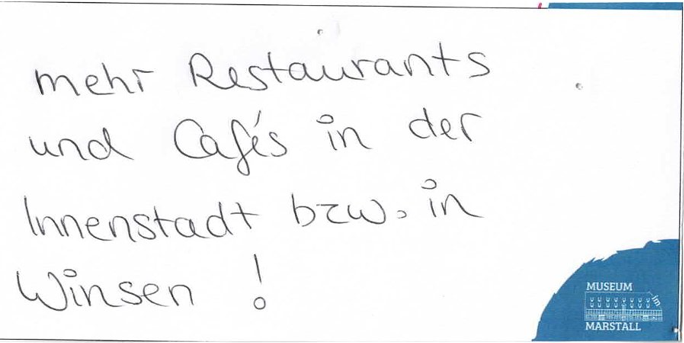 mehr Restaurants
und Cafés in der
Innenstadt bzw. in
Winsen !
MUSEUM
im
MARSTALL